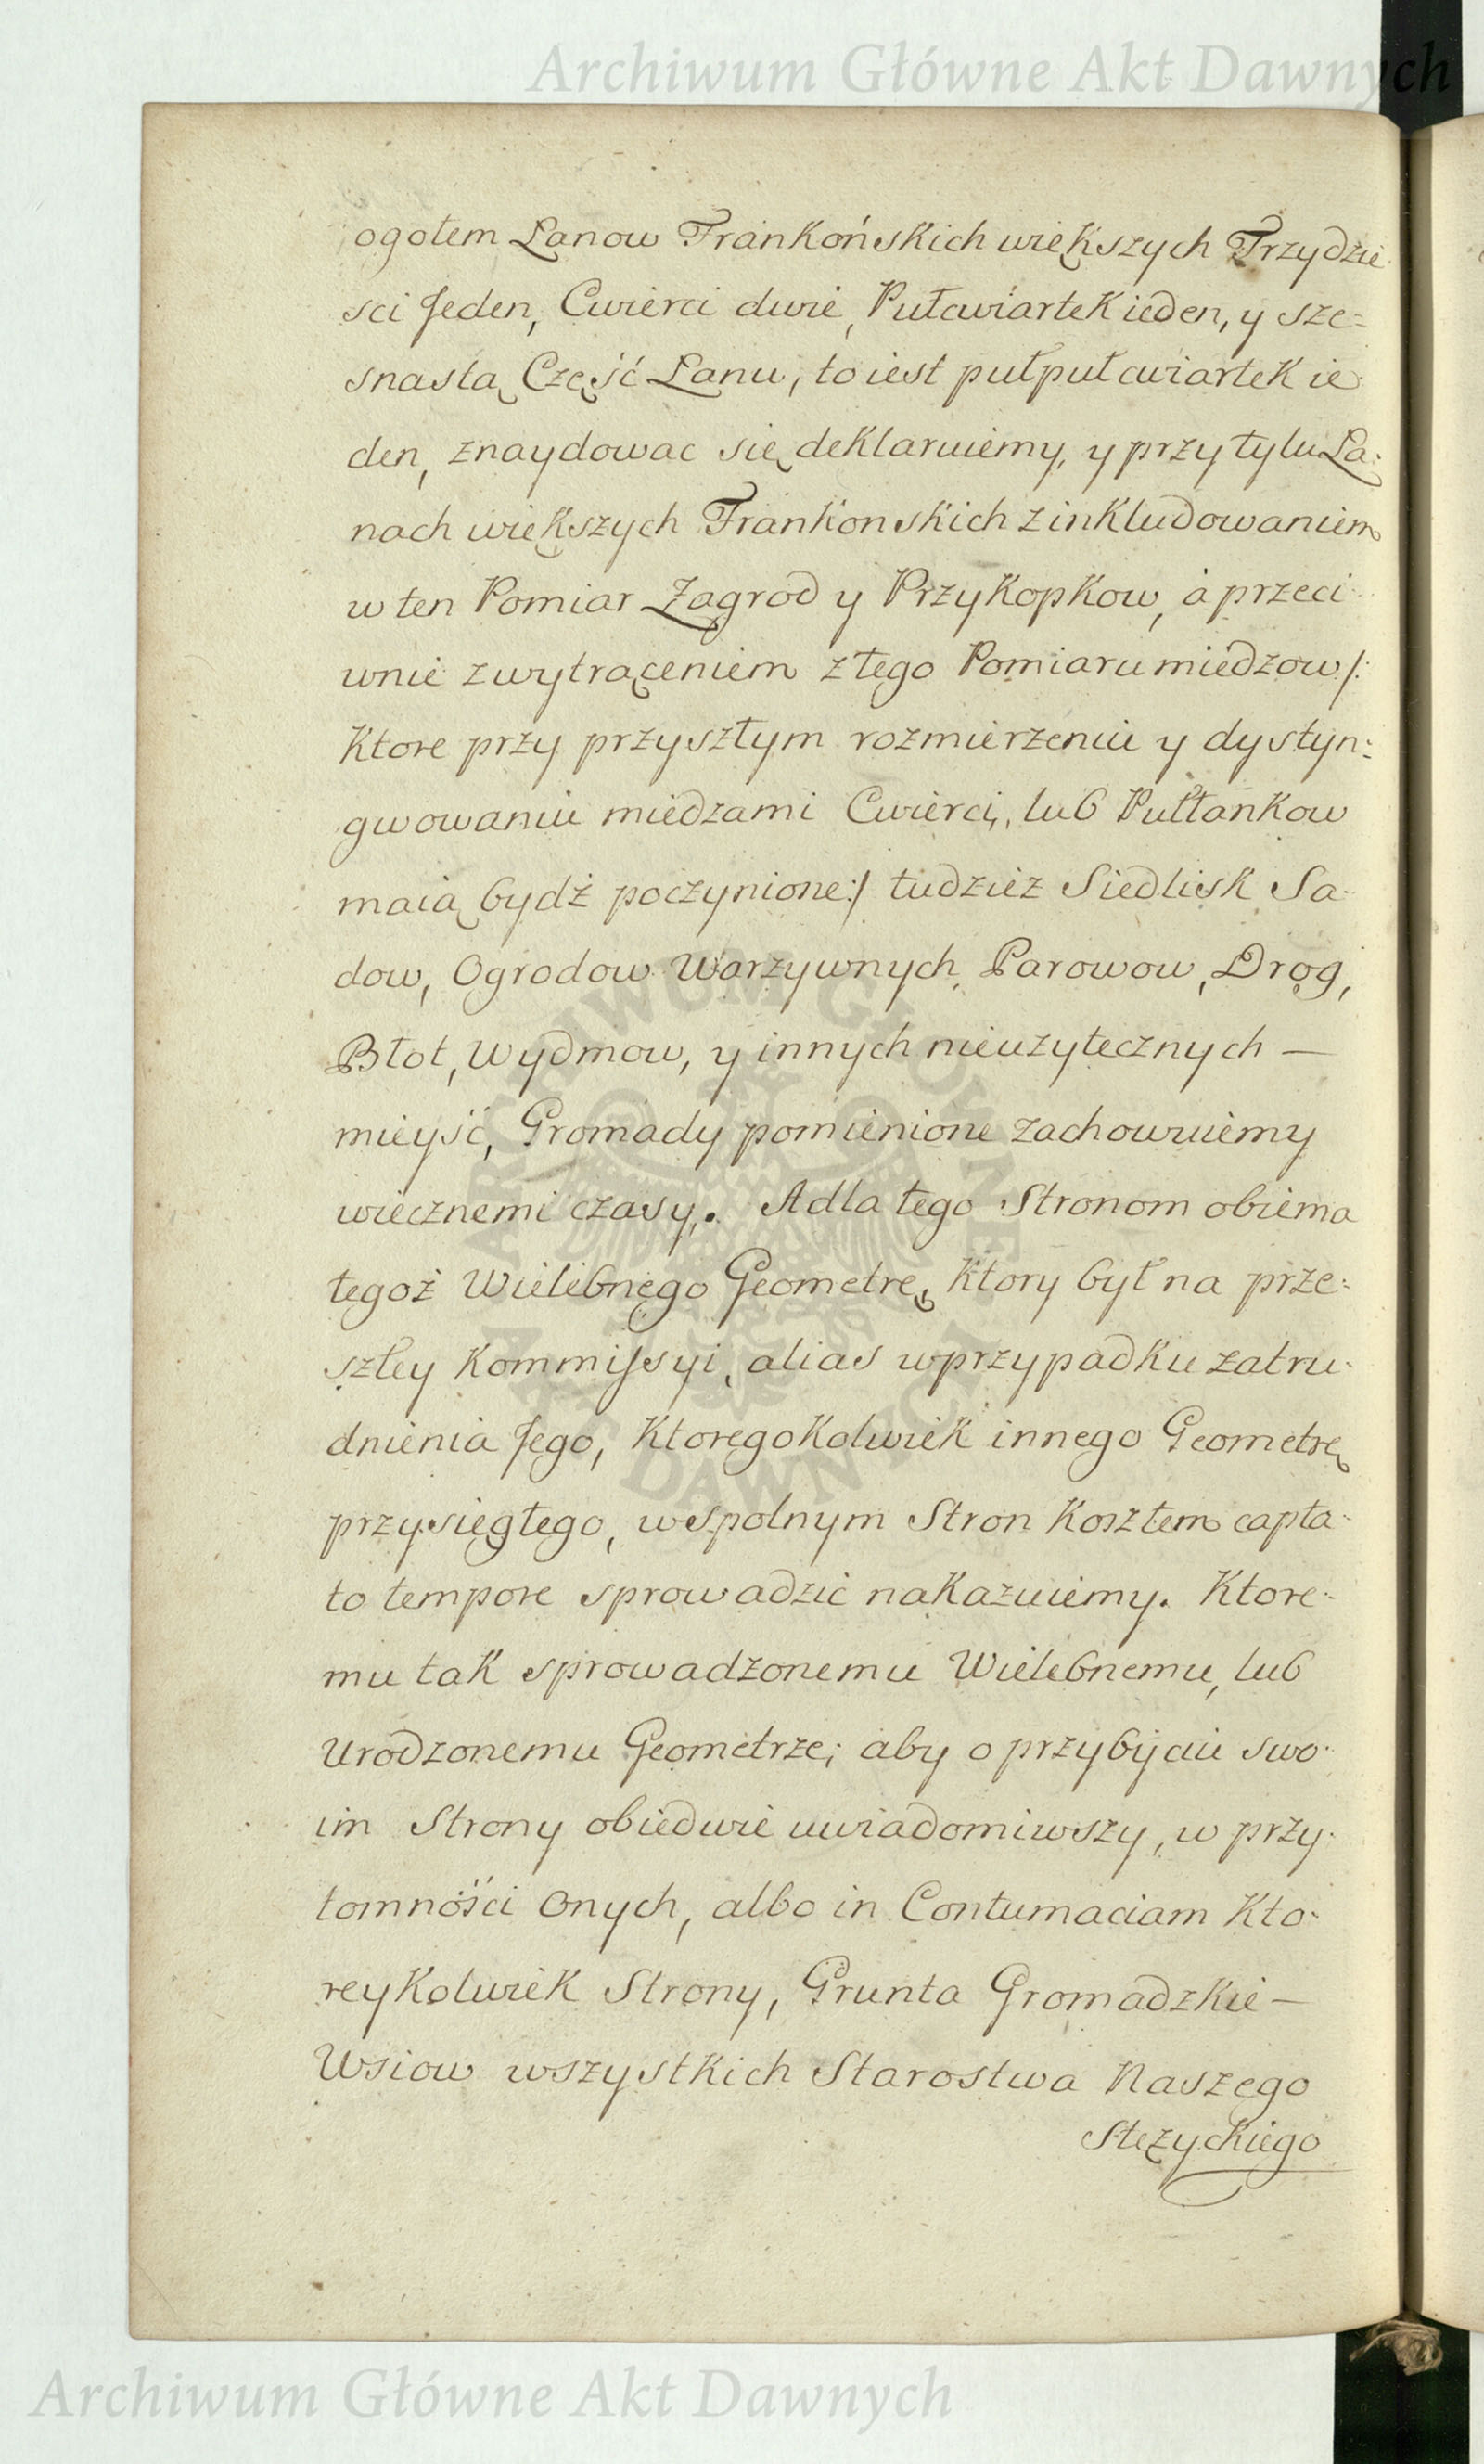 Archiwum Główne Akt Dawnych
ogołem Łanow Frankońskich większych Trzydzie
sci Jeden, Cwierci dwie, Pułcwiartek ieden, y sze=
snasta Część Łanu, to iest pułpułcwiartek ie
den, znaydowac się deklaruiemy, y przy tylu Ła:
nach większych Frankonskich z inkludowaniem
w ten Pomiar Zagrod y Przykopkow, á przeci
wnie z wytrąceniem z tego Pomiaru miedzow /:
ktore przy przyszłym rozmierzeniu y dystyn:
gwowaniu miedzami Cwierci, lub Pułłankow
maią bydź poczynione :/ tudziez Siedlisk Sa
dow, Ogrodow Warzywnych, Parowow, Drog,
Błot, Wydmow, y innych nieuzytecznych —
mieyść, Gromady pomienione zachowuiemy
wiecznemi czasy. A dla tego Stronom obiema
tegoż Wielebnego Geometrę, ktory był na prze:
szłey Kommissyi, alias w przypadku zatru:
dnienia Jego, ktoregokolwiek innego Geometrę
przysięgłego, wspolnym Stron kosztem capta:
to tempore sprowadzic nakazuiemy. Ktore:
mu tak sprowadzonemu Wielebnemu, lub
Urodzonemu Geometrze; aby o przybyciu swo:
im Strony obiedwie uwiadomiwszy, w przy:
tomności onych, albo in Contumaciam kto:
reykolwiek Strony, Grunta Gromadzkie —
Wsiow wszystkich Starostwa Naszego
Stęzyckiego
ARCHIWUM GŁÓWNE
AKT DAWNYCH
Archiwum Główne Akt Dawnych